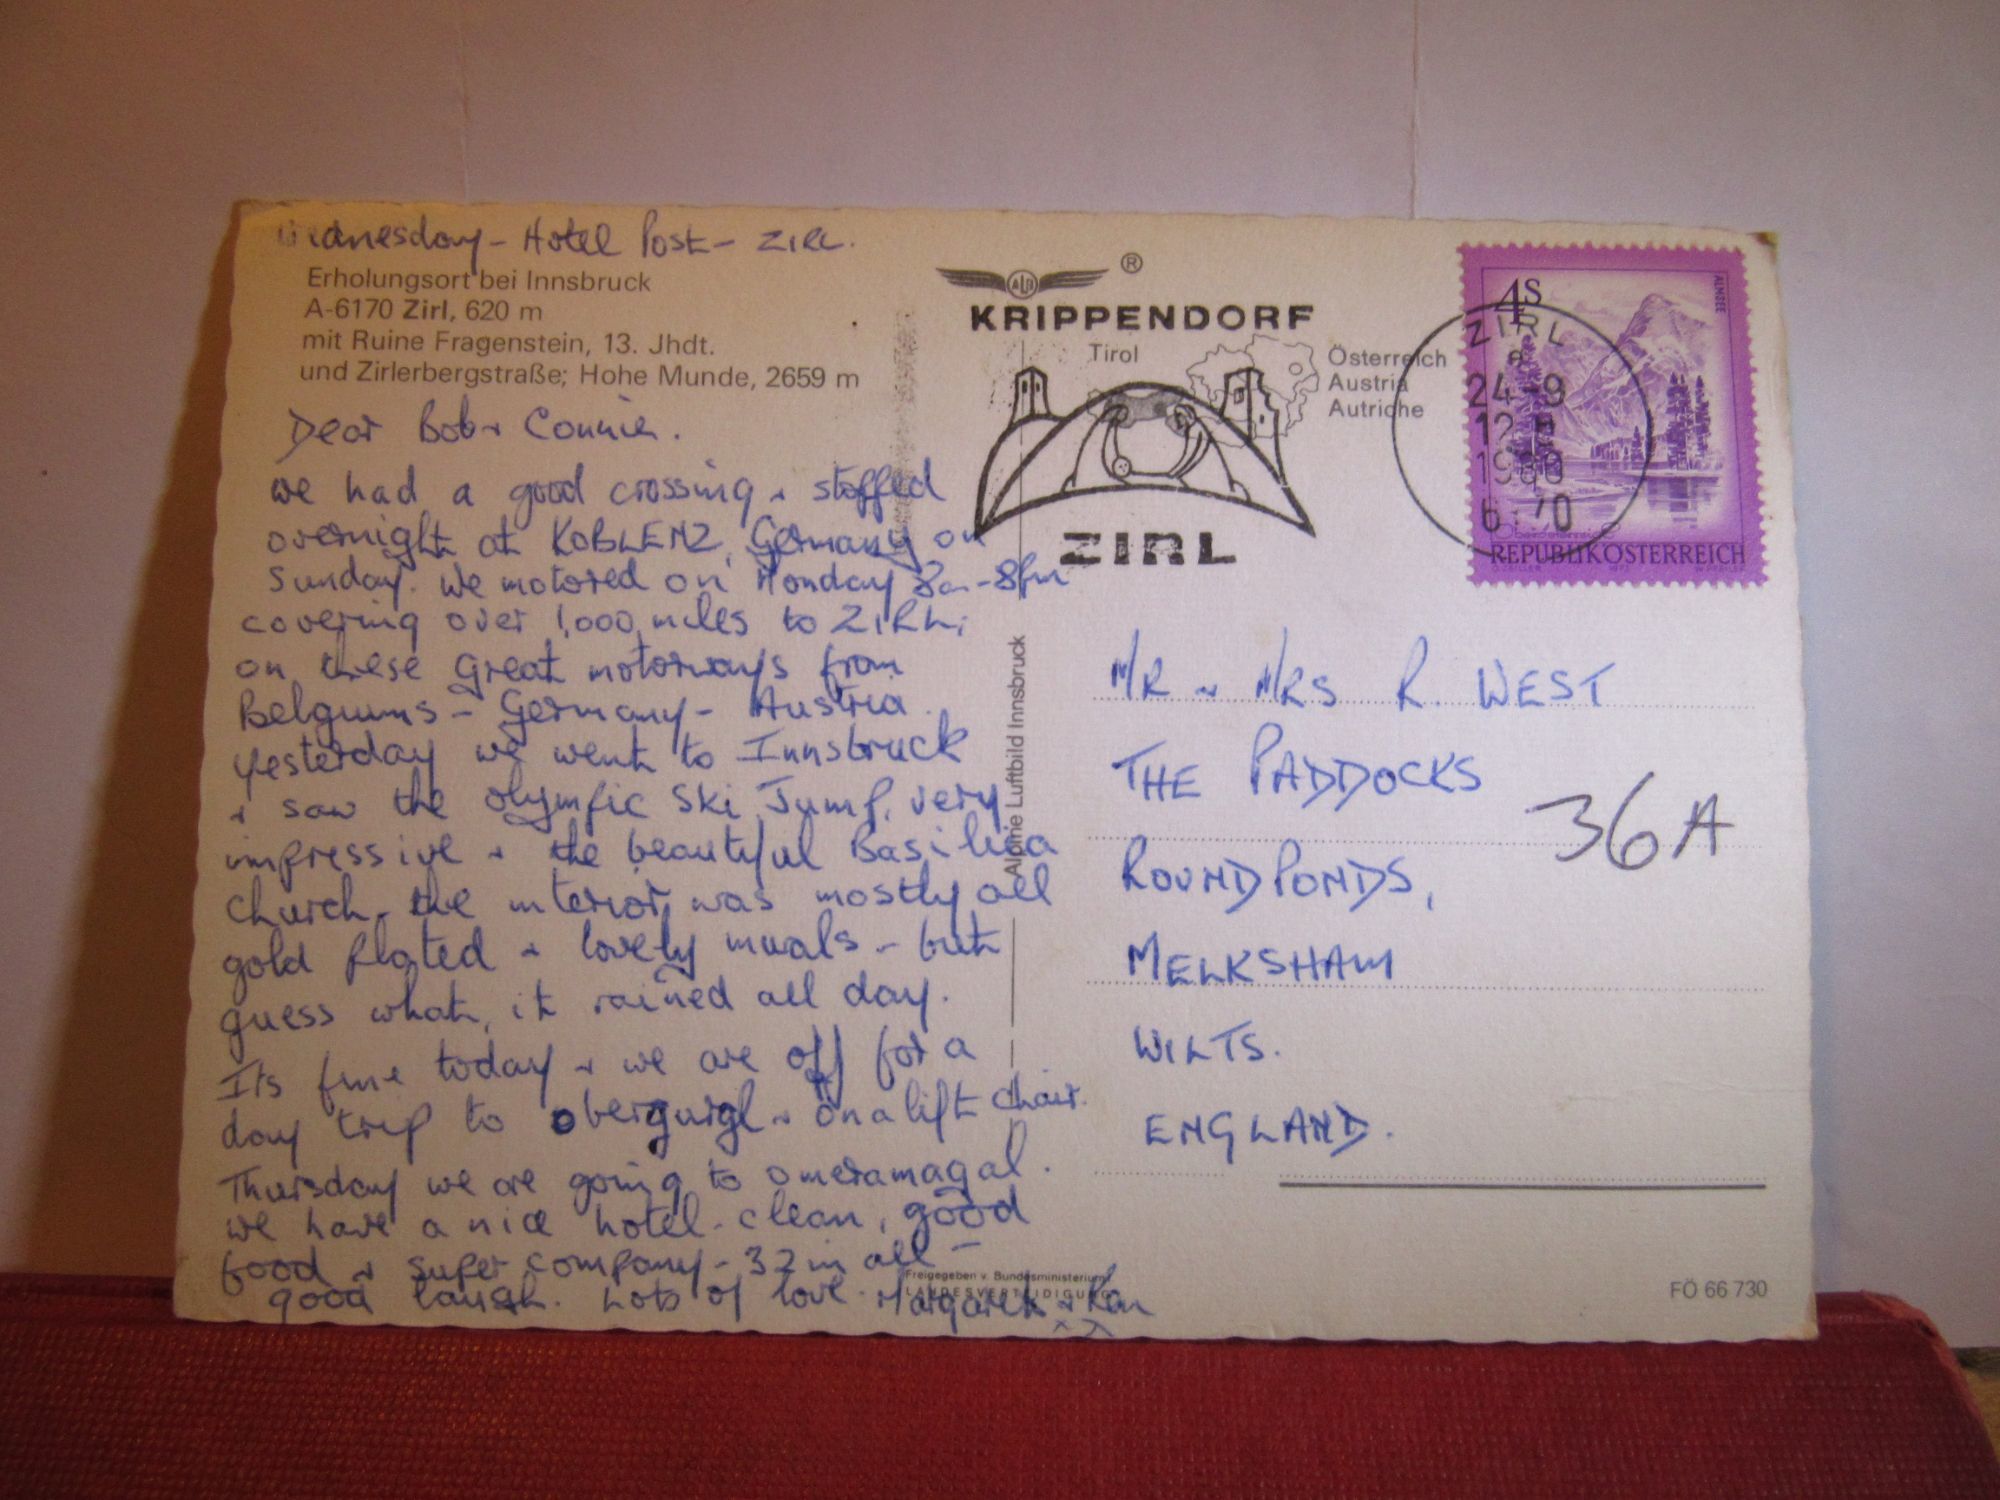 Wednesday - Hotel Post - ZIRL.
Erholungsort bei Innsbruck
A-6170 Zirl, 620 m
mit Ruine Fragenstein, 13. Jhdt.
und Zirlerbergstraße; Hohe Munde, 2659 m
Dear Bob & Connie.
we had a good crossing & stopped
overnight at KOBLENZ, Germany on
Sunday. We motored on Monday 8am-8pm
covering over 1,000 miles to ZIRL,
on these great motorways from
Belgiums - Germany - Austria.
yesterday we went to Innsbruck
& saw the olympic Ski Jump, very
impressive & the beautiful Basilica
Church, the interior was mostly all
gold plated & lovely murals - but
guess what, it rained all day.
Its fine today & we are off for a
day trip to obergurgl & on a lift chair.
Thursday we are going to omeramagal.
we have a nice hotel - clean, good
food & super company - 32 in all -
good laugh. Lots of love. Margaret & Ken
xx
ALR ®
KRIPPENDORF
Tirol
Österreich
Austria
Autriche
ZIRL
Alpine Luftbild Innsbruck
4S
ALMSEE
ZIRL
a
24.-9
12
1980
6170
Oberösterreich
REPUBLIK ÖSTERREICH
MR & MRS R. WEST
THE PADDOCKS
36A
ROUNDPONDS,
MELKSHAM
WILTS.
ENGLAND.
Freigegeben v. Bundesministerium
LANDESVERTEIDIGUNG
FÖ 66 730